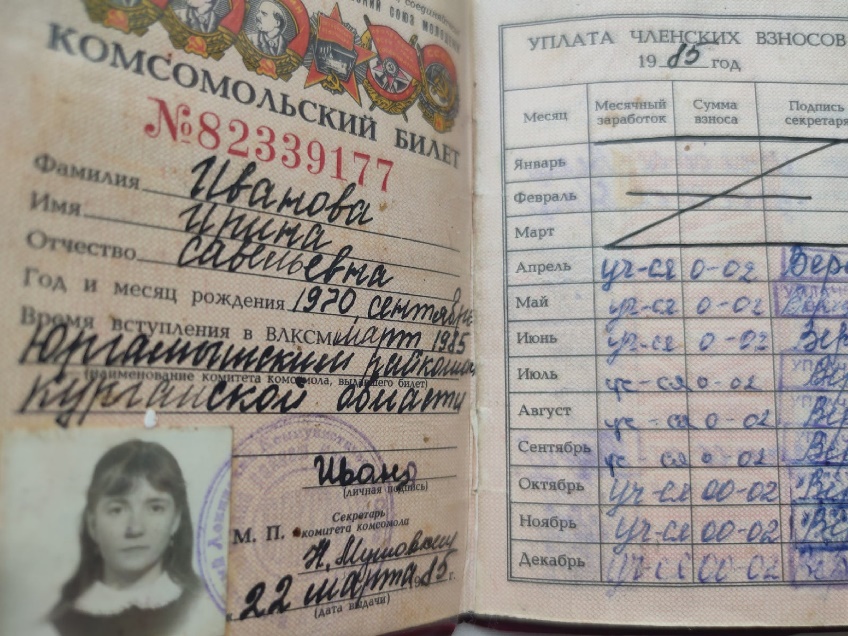 СОЮЗ МОЛОДЕЖИ
КОМСОМОЛЬСКИЙ БИЛЕТ
№82339177
Фамилия Иванова
Имя Ирина
Отчество Савельевна
Год и месяц рождения 1970, сентябрь
Время вступления в ВЛКСМ март 1985
Юргамышским райкомом
(наименование комитета комсомола, выдавшего билет)
Курганской области
(личная подпись)
Секретарь
М. П. комитета комсомола
22 марта 1985 г.
(дата выдачи)
УПЛАТА ЧЛЕНСКИХ ВЗНОСОВ
1985 год
Месяц Месячный заработок Сумма взноса Подпись секретаря
Январь
Февраль
Март
Апрель уч-ся 0-02
Май уч-ся 0-02
Июнь уч-ся 0-02
Июль уч-ся 0-02
Август уч-ся 0-02
Сентябрь уч-ся 0-02
Октябрь уч-ся 00-02
Ноябрь уч-ся 00-02
Декабрь уч-ся 00-02